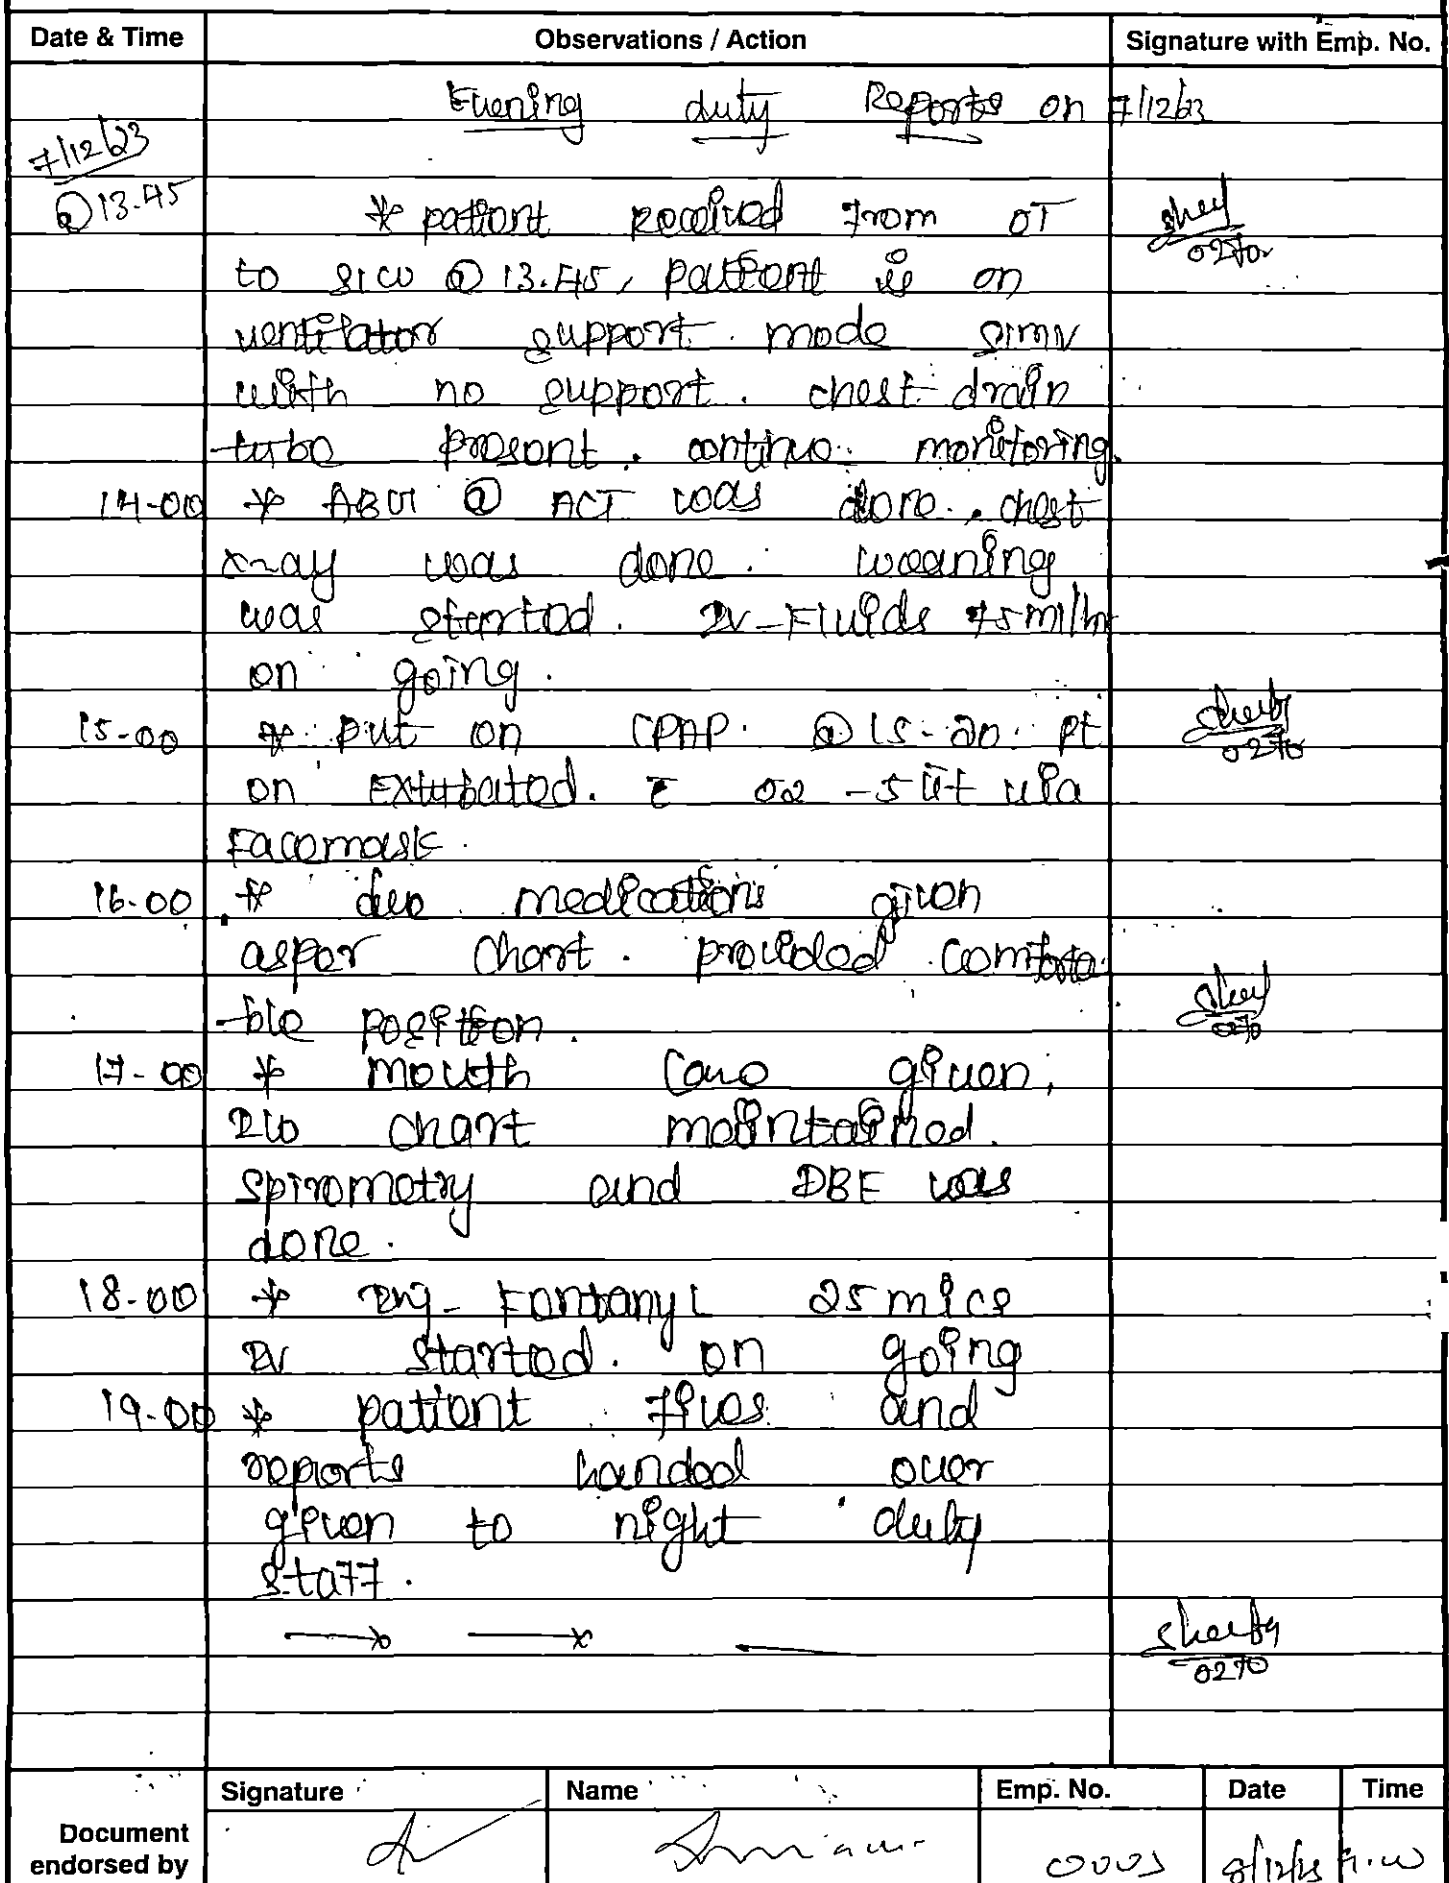 Date & Time Observations / Action Signature with Emp. No.
Evening duty Reports on 7/12/23
7/12/23
@ 13.45 * patient received from OT
0270
to SICU @ 13.45, patient is on
ventilator support. mode SIMV
with no support. chest drain
tube present. continue monitoring.
14-00 * ABG @ ACT was done. chest
x-ray was done. weaning
was started. IV-Fluids 75ml/hr
on going.
15-00 * put on CPAP. @ 15-20. pt
0270
on Extubated. c̄ O2 -5 lit via
Facemask.
16.00 * due medications given
as per chart. provided comforta
-ble position.
0270
17-00 * mouth care given,
I/O chart maintained.
Spirometry and DBE was
done.
18-00 * Inj- Fentanyl 25 mics
IV started. on going
19-00 * patient files and
reports handed over
given to night duty
staff.
0270
Signature Name Emp. No. Date Time
Document
endorsed by
8/12/23